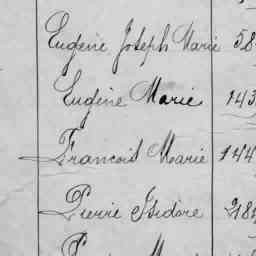 Eugène Joseph Marie 58
Eugène Marie 143
Francois Marie 144
Pierre Isidore